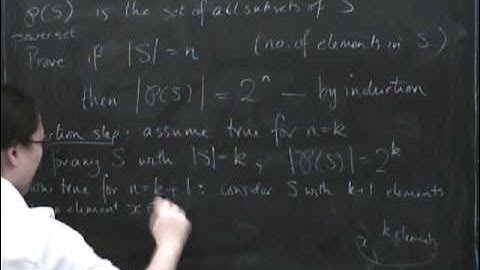 P(S) is the set of all subsets of S
powerset
Prove if |S| = n (no. of elements in S)
then |P(S)| = 2^n — by induction
ction step: assume true for n=k
for any S with |S| = k, |P(S)| = 2^k
true for n=k+1: consider S with k+1 elements
element x
x k elements